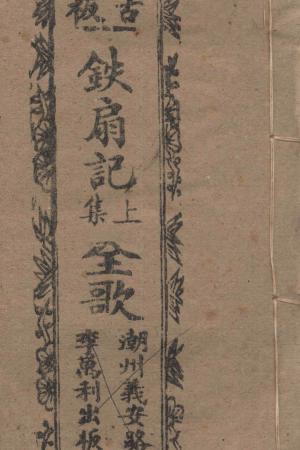 古板
鉄扇記
上集
全歌
潮州義安路
李萬利出板